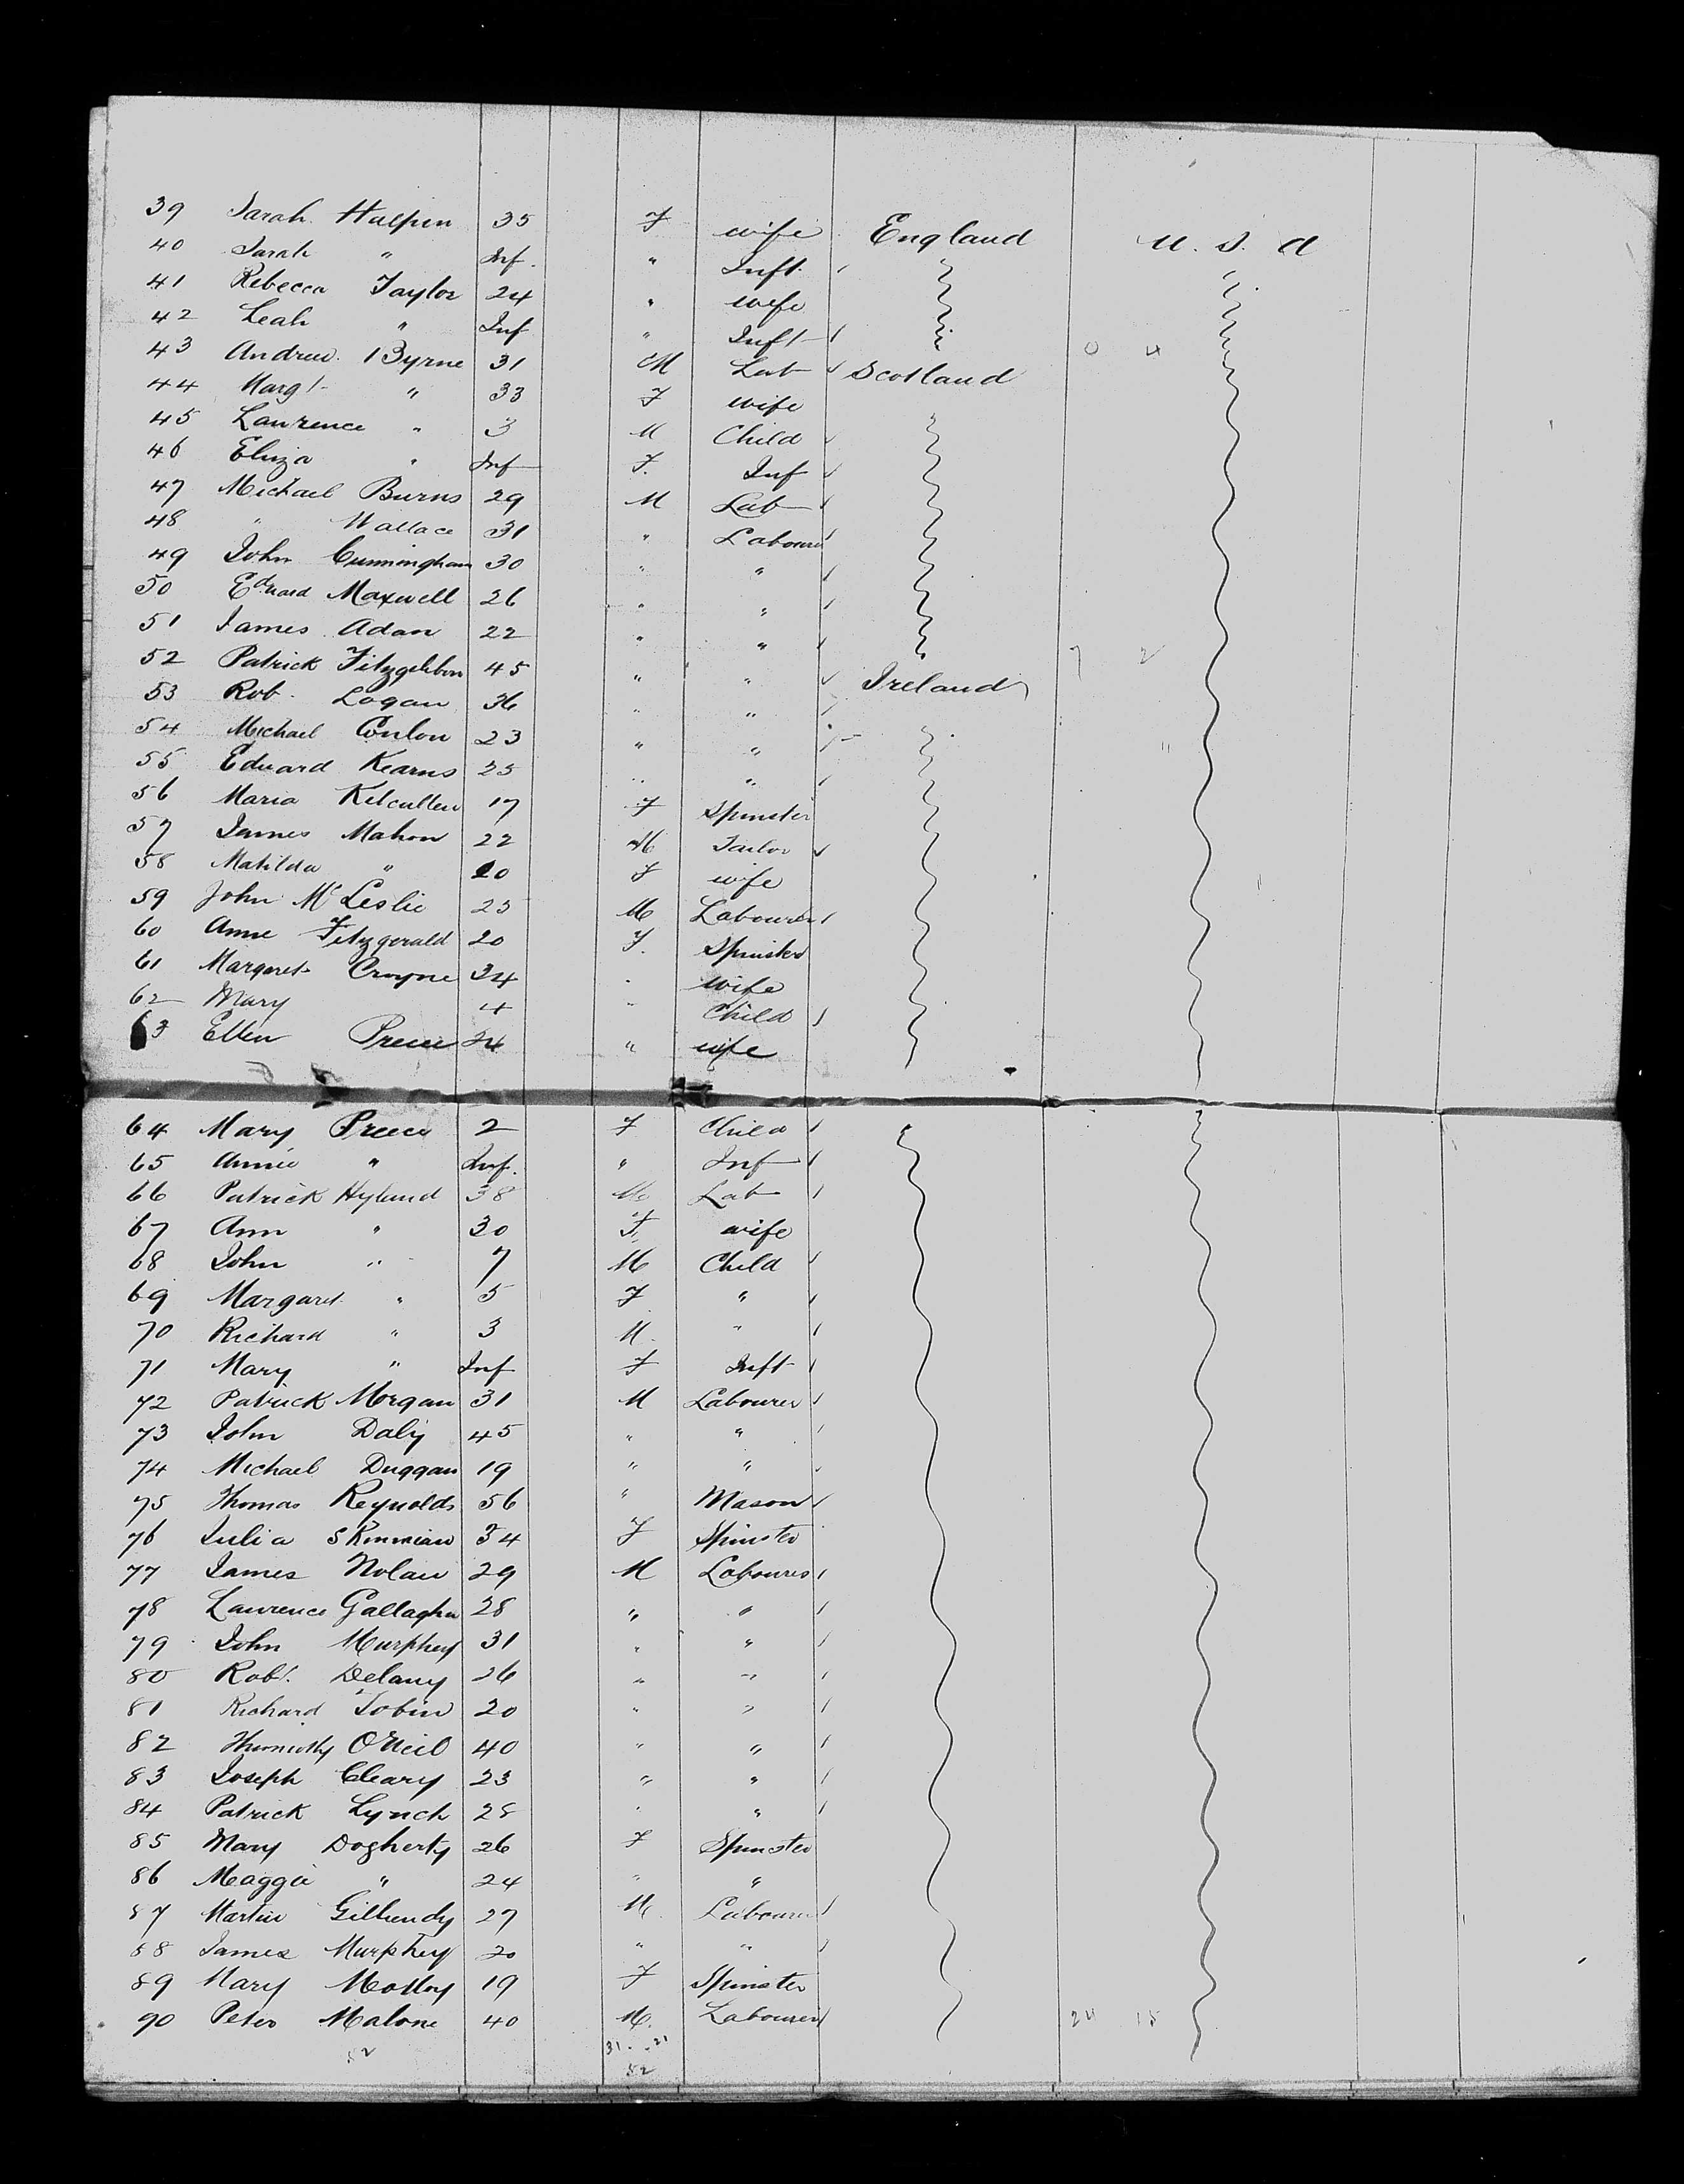 39 Sarah Halpen 35 F wife England U. S. A
40 Sarah " Inf. " Inft.
41 Rebecca Taylor 24 " wife
42 Leah " Inf " Inft
43 Andrew Byrne 31 M Lab Scotland 0 4
44 Margt " 33 F wife
45 Lawrence " 3 M Child
46 Eliza " Inf F. Inf
47 Michael Burns 29 M Lab
48 " Wallace 31 " Labourer
49 John Cunningham 30 " "
50 Edward Maxwell 26 " "
51 James Adan 22 " "
52 Patrick Fitzgibbon 45 " " Ireland 7 2
53 Rob. Logan 36 " "
54 Michael Conlon 23 " "
55 Edward Kearns 25 " "
56 Maria Kilcullen 17 F Spinster
57 James Mahon 22 M Tailor
58 Matilda " 20 F wife
59 John Mc Leslie 25 M Labourer
60 Anne Fitzgerald 20 F. Spinster
61 Margaret Croyne 34 " wife
62 Mary 4 " Child
63 Ellen Preece 24 " wife
64 Mary Preece 2 F Child
65 Annie " Inf. " Inf
66 Patrick Hyland 38 M Lab
67 Ann " 30 F. wife
68 John " 7 M Child
69 Margaret " 5 F "
70 Richard " 3 M. "
71 Mary " Inf F Inft
72 Patrick Morgan 31 M Labourer
73 John Daly 45 " "
74 Michael Duggan 19 " "
75 Thomas Reynolds 56 " Mason
76 Julia 34 F Spinster
77 James Nolan 29 M Labourer
78 Lawrence Gallagher 28 " "
79 John Murphey 31 " "
80 Robt. Delany 26 " "
81 Richard Tobin 20 " "
82 Thimothy O'Neil 40 " "
83 Joseph Cleary 23 " "
84 Patrick Lynch 28 " "
85 Mary Dogherty 26 F Spinster
86 Maggie " 24 " "
87 Martin 27 M. Labourer
88 James Murphey 20 " "
89 Mary Molloy 19 F Spinster
90 Peter Malone 40 M. Labourer 24 15
52 31 21
52